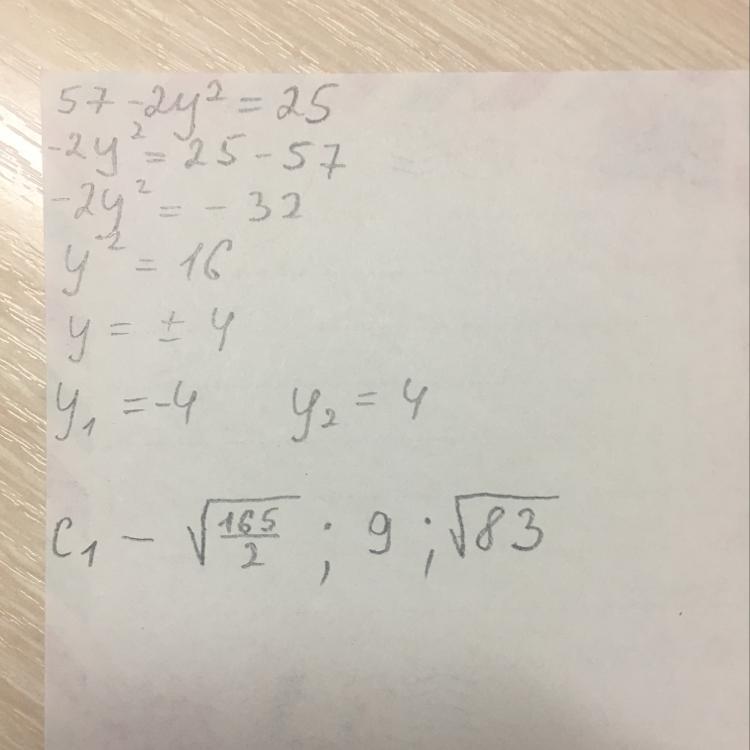 57 - 2y² = 25
-2y² = 25 - 57
-2y² = - 32
y² = 16
y = ± 4
y₁ = -4 y₂ = 4
C₁ - √(165/2) ; 9 ; √83